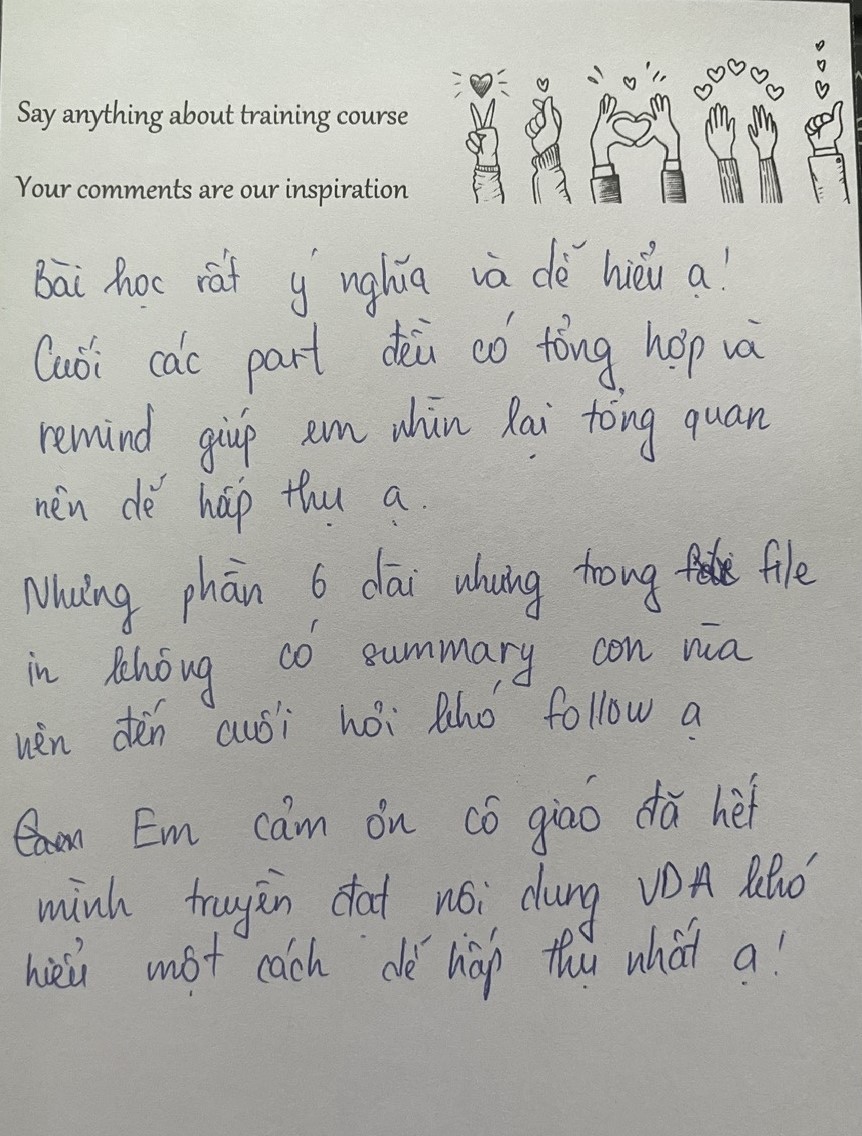 Say anything about training course
Your comments are our inspiration
Bài học rất ý nghĩa và dễ hiểu ạ!
Cuối các part đều có tổng hợp và
remind giúp em nhìn lại tổng quan
nên dễ hấp thụ ạ.
Nhưng phần 6 dài nhưng trong file
in không có summary con nữa
nên đến cuối hơi khó follow ạ
Em cảm ơn cô giáo đã hết
mình truyền đạt nội dung VDA khó
hiểu một cách dễ hấp thụ nhất ạ!